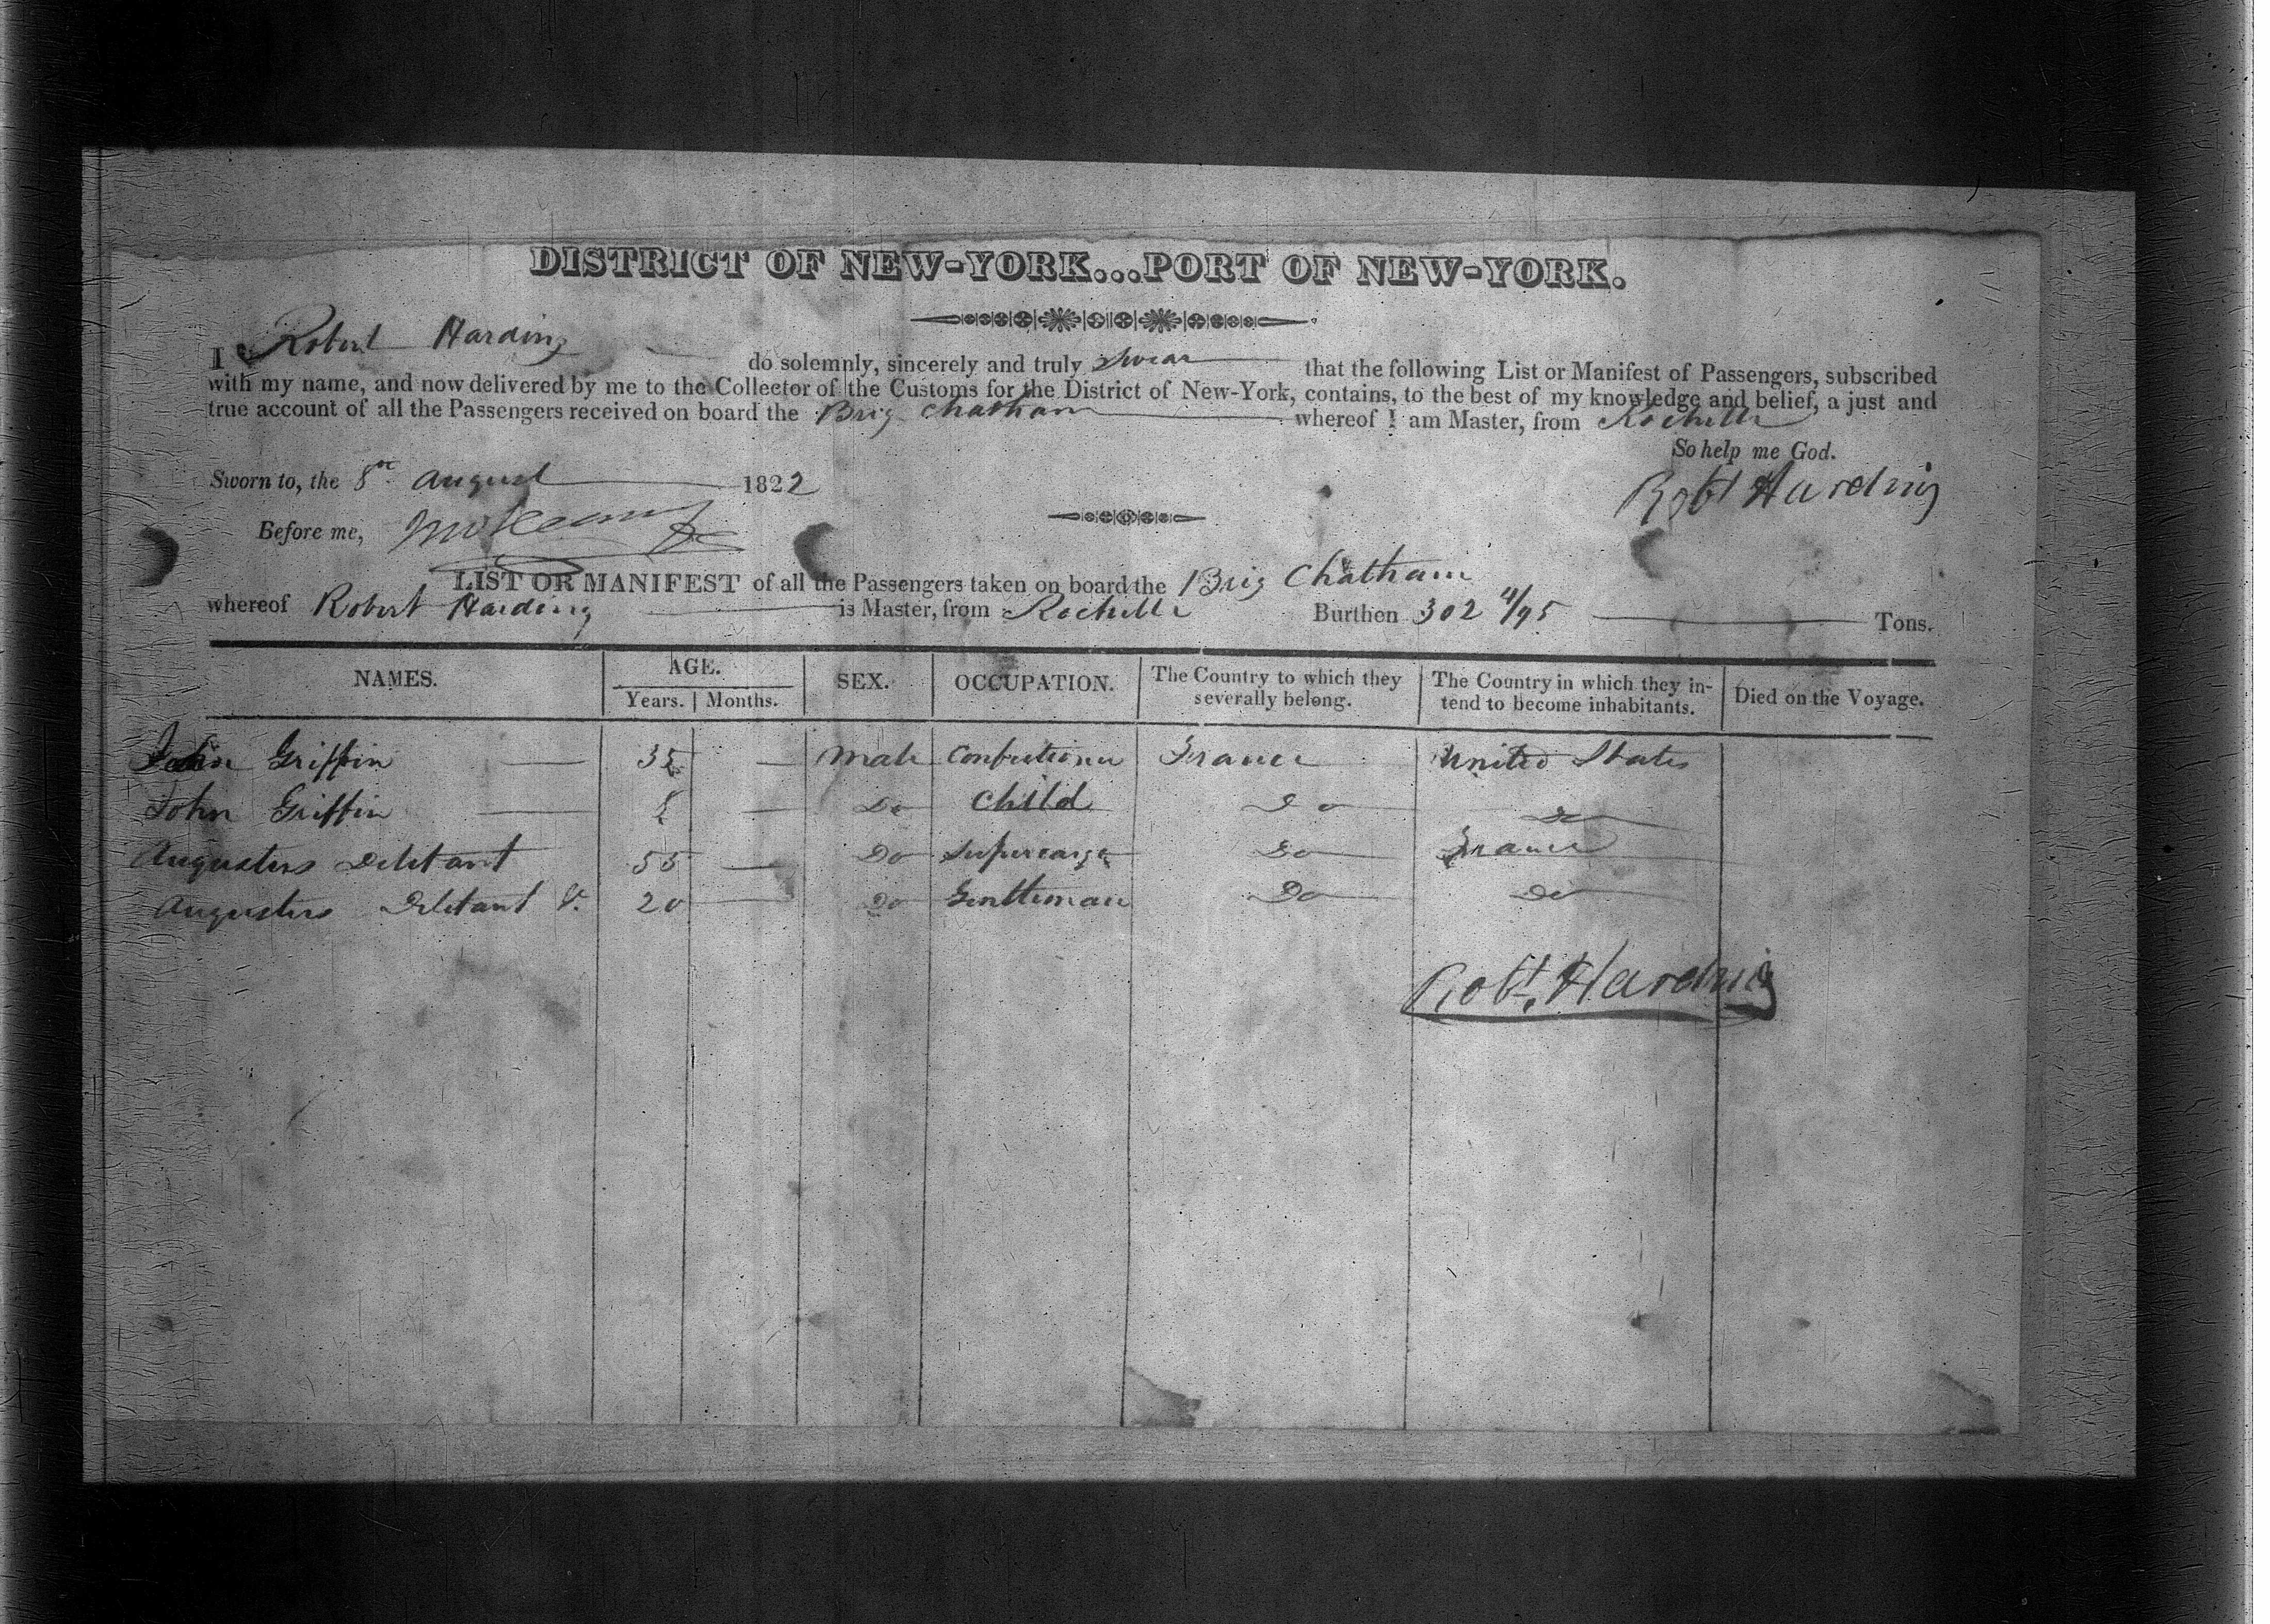 DISTRICT OF NEW-YORK...PORT OF NEW-YORK.
I Robert Harding do solemnly, sincerely and truly swear that the following List or Manifest of Passengers, subscribed
with my name, and now delivered by me to the Collector of the Customs for the District of New-York, contains, to the best of my knowledge and belief, a just and
true account of all the Passengers received on board the Brig Chatham whereof I am Master, from Rochelle
So help me God.
Sworn to, the 8th August 1822
Robt Harding
Before me,
LIST OR MANIFEST of all the Passengers taken on board the Brig Chatham
whereof Robert Harding is Master, from Rochelle Burthen 302 4/95 Tons.
NAMES. AGE. Years. Months. SEX. OCCUPATION. The Country to which they severally belong. The Country in which they intend to become inhabitants. Died on the Voyage.
John Griffin 35 Male Confectioner France United States
John Griffin 8 Do Child Do Do
Augustus Delitant 55 Do Supercargo Do France
Augustus Delitant 20 Do Gentleman Do Do
Robt. Harding